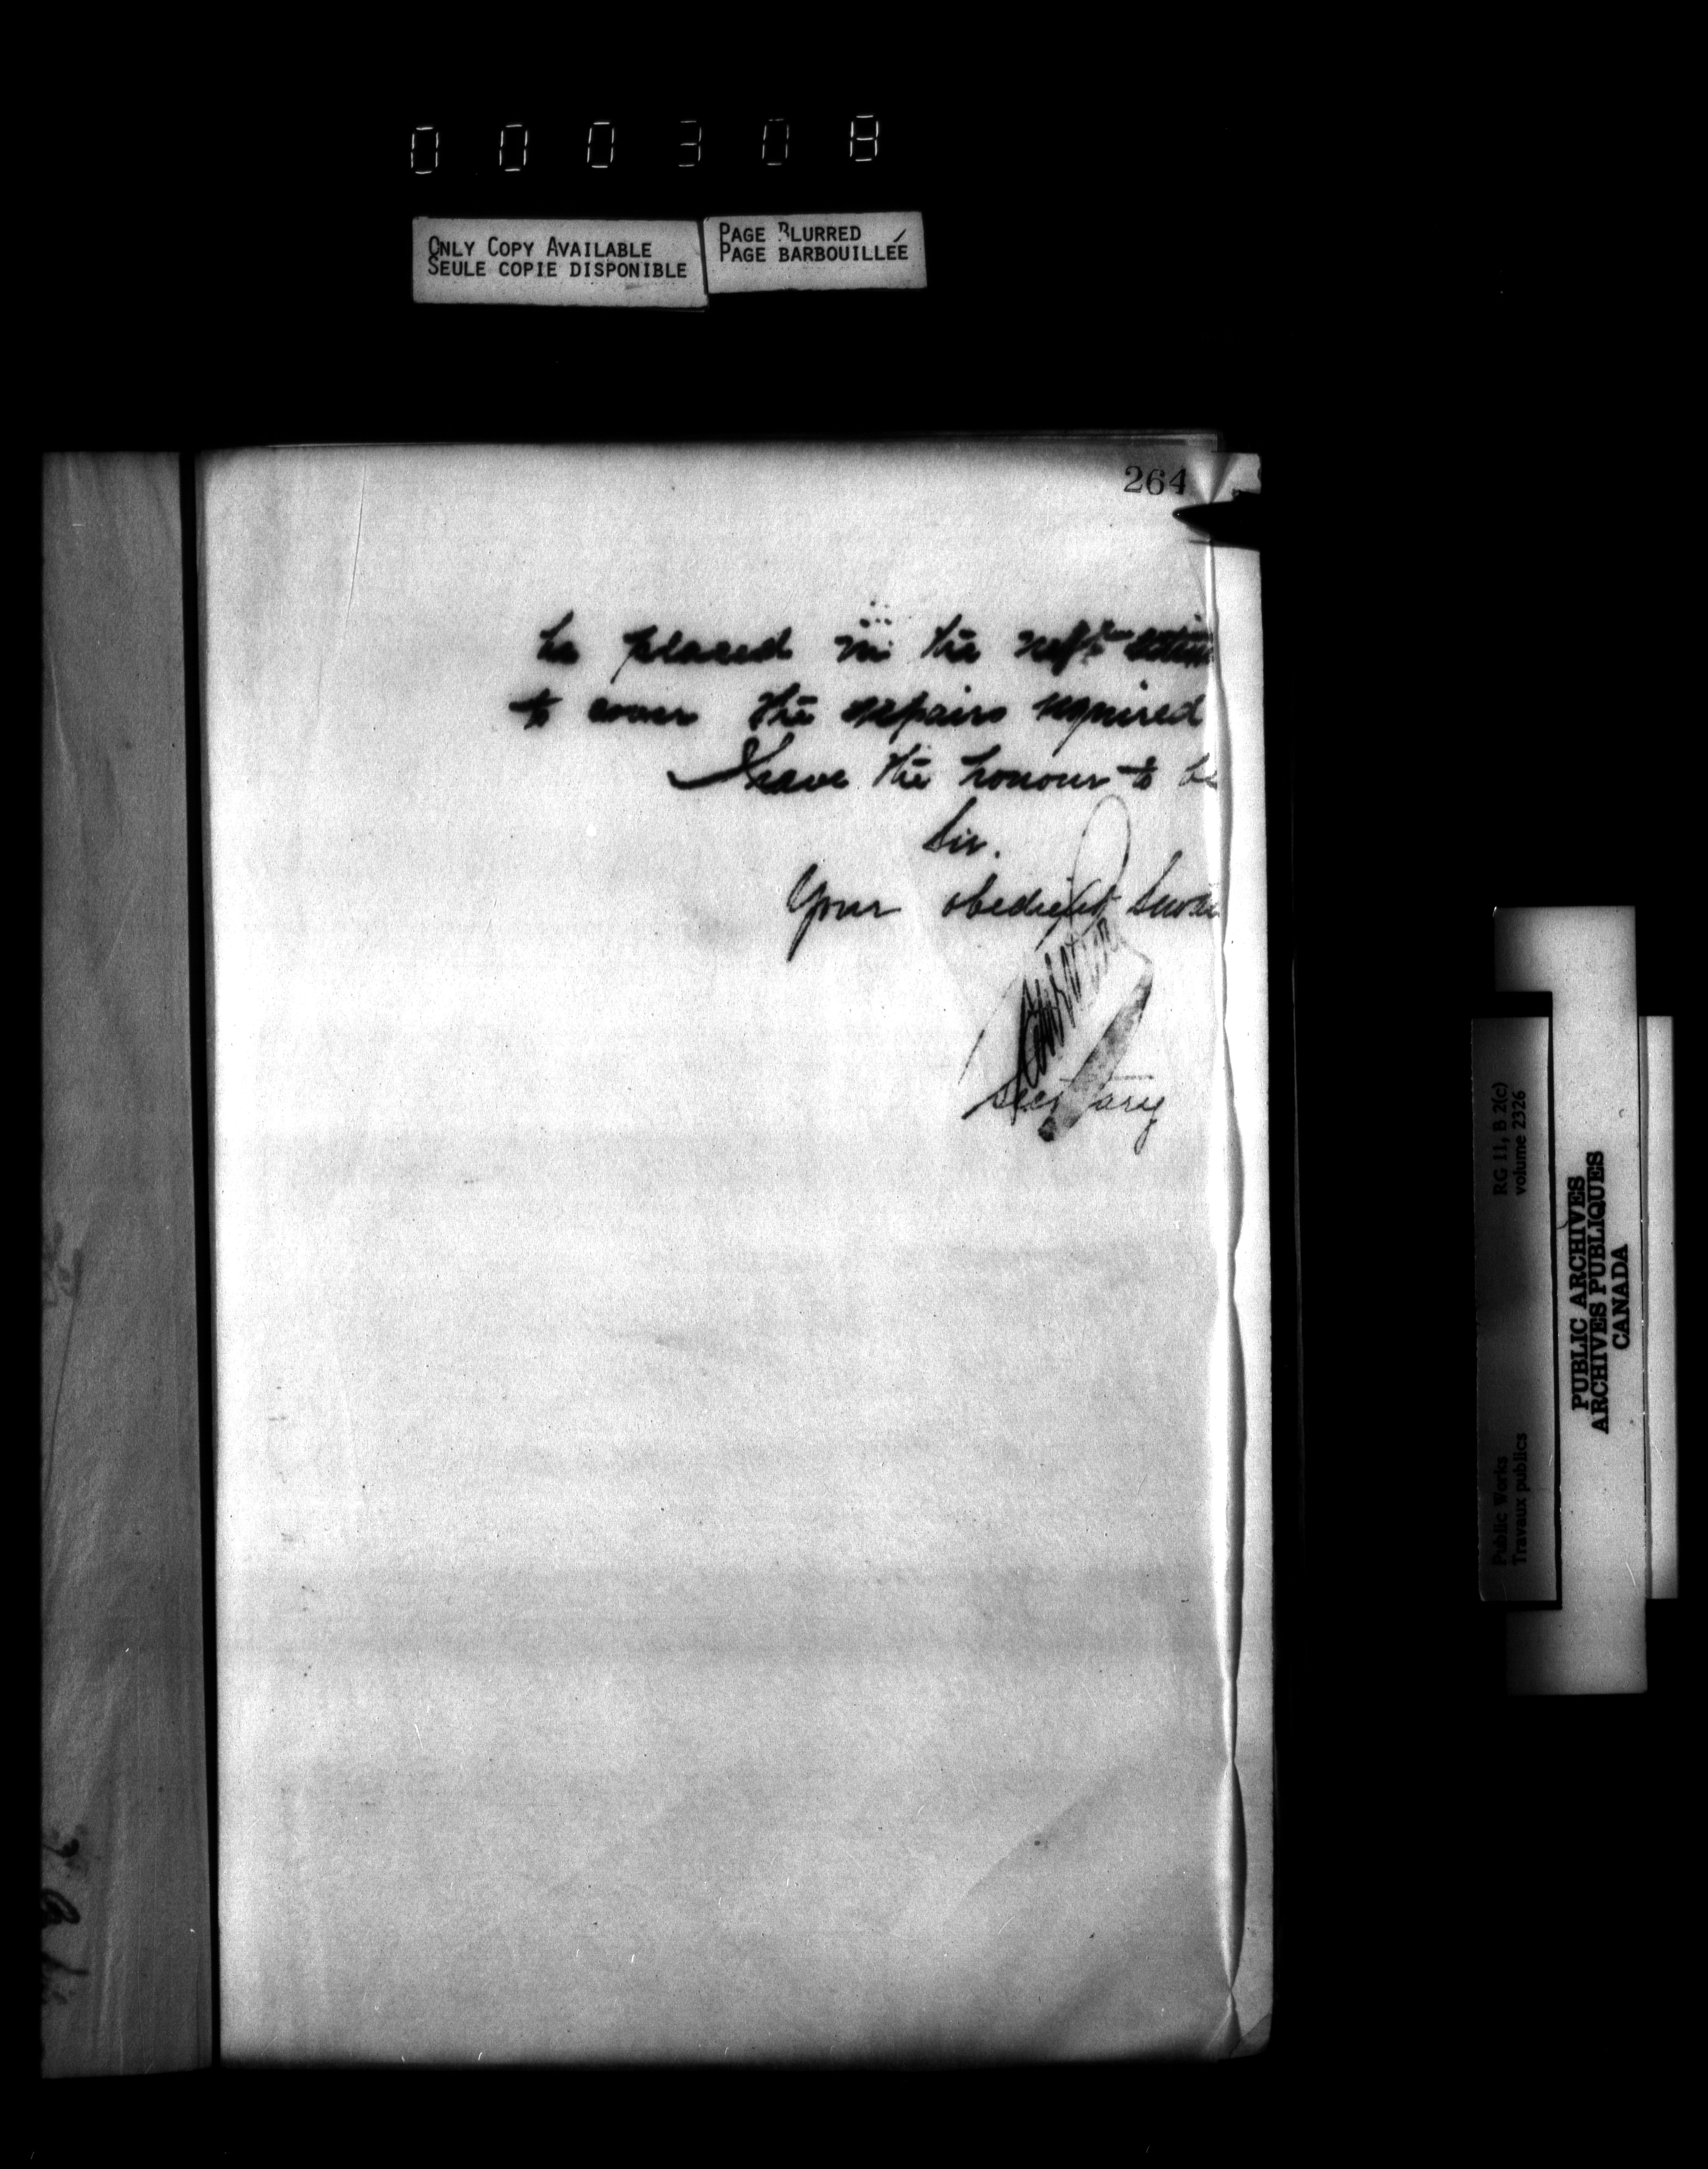 000308
ONLY COPY AVAILABLE
SEULE COPIE DISPONIBLE
PAGE BLURRED
PAGE BARBOUILLÉE
264
be placed in the
to cover the repairs required
I have the honour to be
Sir.
Your obedient Servan
Secretary
Public Works
Travaux publics
RG 11, B 2(c)
volume 2326
PUBLIC ARCHIVES
ARCHIVES PUBLIQUES
CANADA